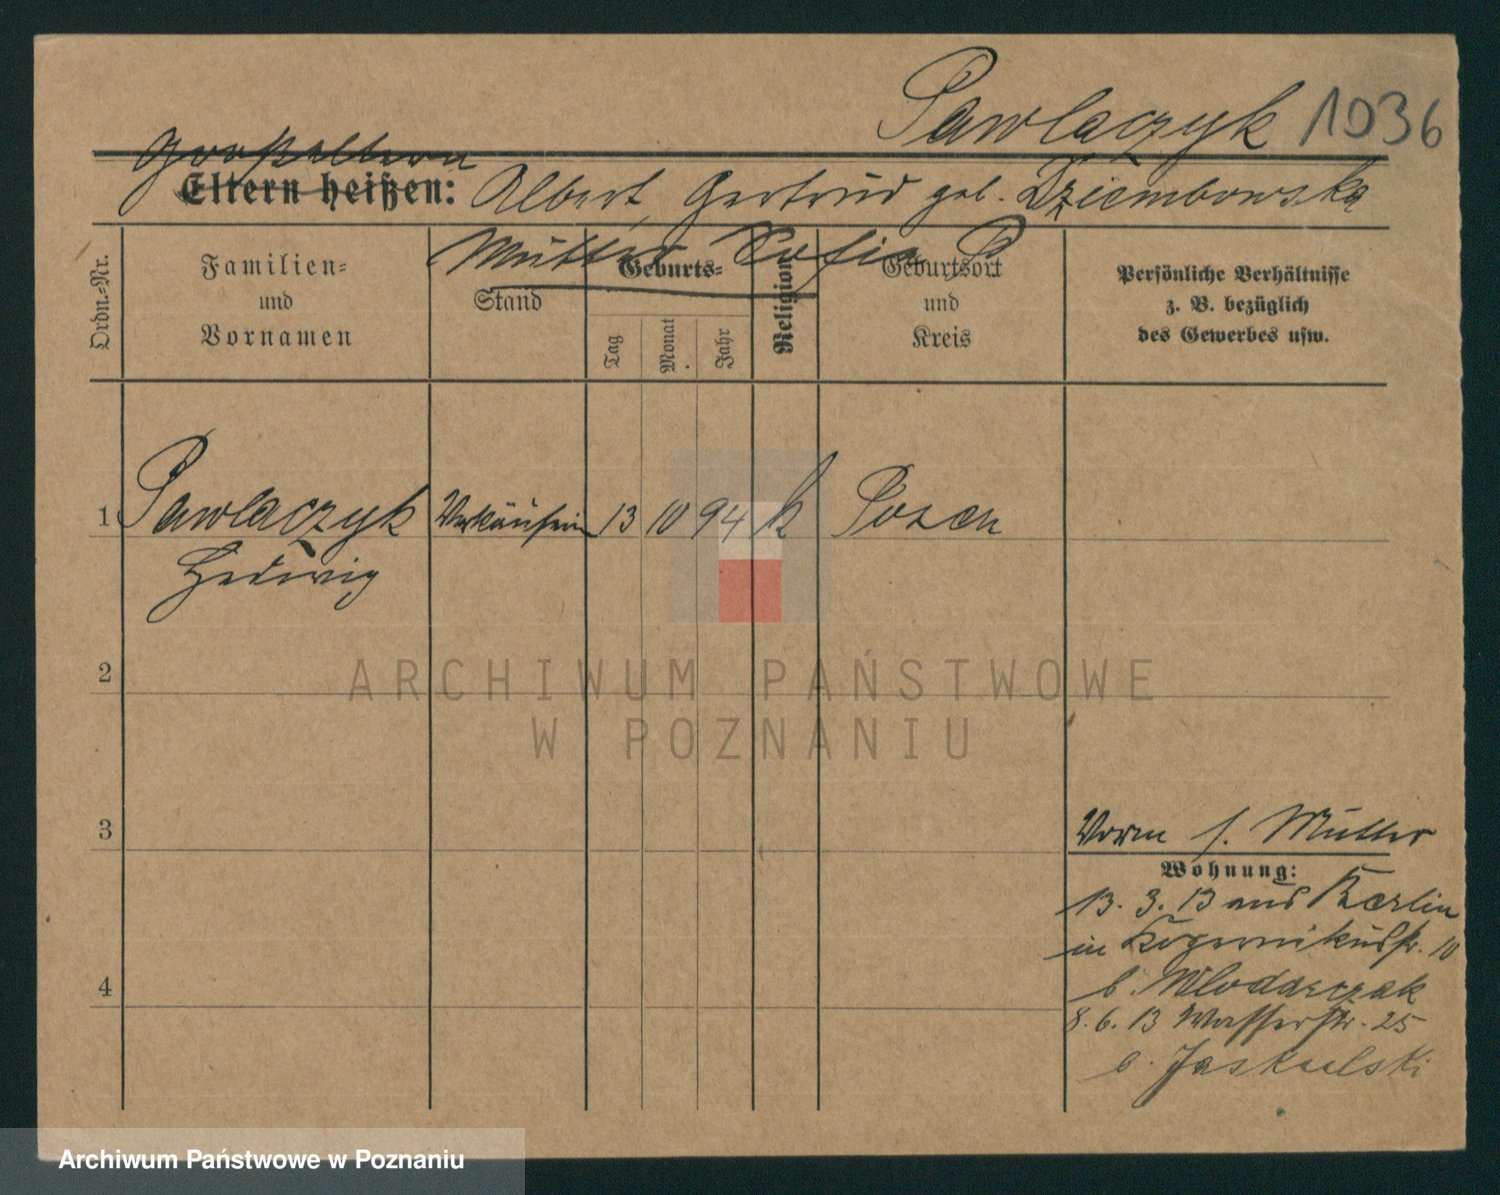 Pawlaczyk 1036
Großeltern
Eltern heißen: Albert, Gertrud geb. Dziembowska
Mutter Sofia P
Ordn.-Nr.
Familien-
und
Vornamen
Stand
Geburts-
Tag
Monat
Jahr
Religion
Geburtsort
und
Kreis
Persönliche Verhältnisse
z. B. bezüglich
des Gewerbes usw.
1 Pawlaczyk Verkäuferin 13 10 94 k Posen
Hedwig
2
3
4
Vorm s. Mutter
Wohnung:
13. 3. 13 aus Berlin
in Kopernikusstr. 10
b. Wlodarczak
8. 6. 13 Wasserstr. 25
b. Jaskulski
ARCHIWUM PAŃSTWOWE
W POZNANIU
Archiwum Państwowe w Poznaniu